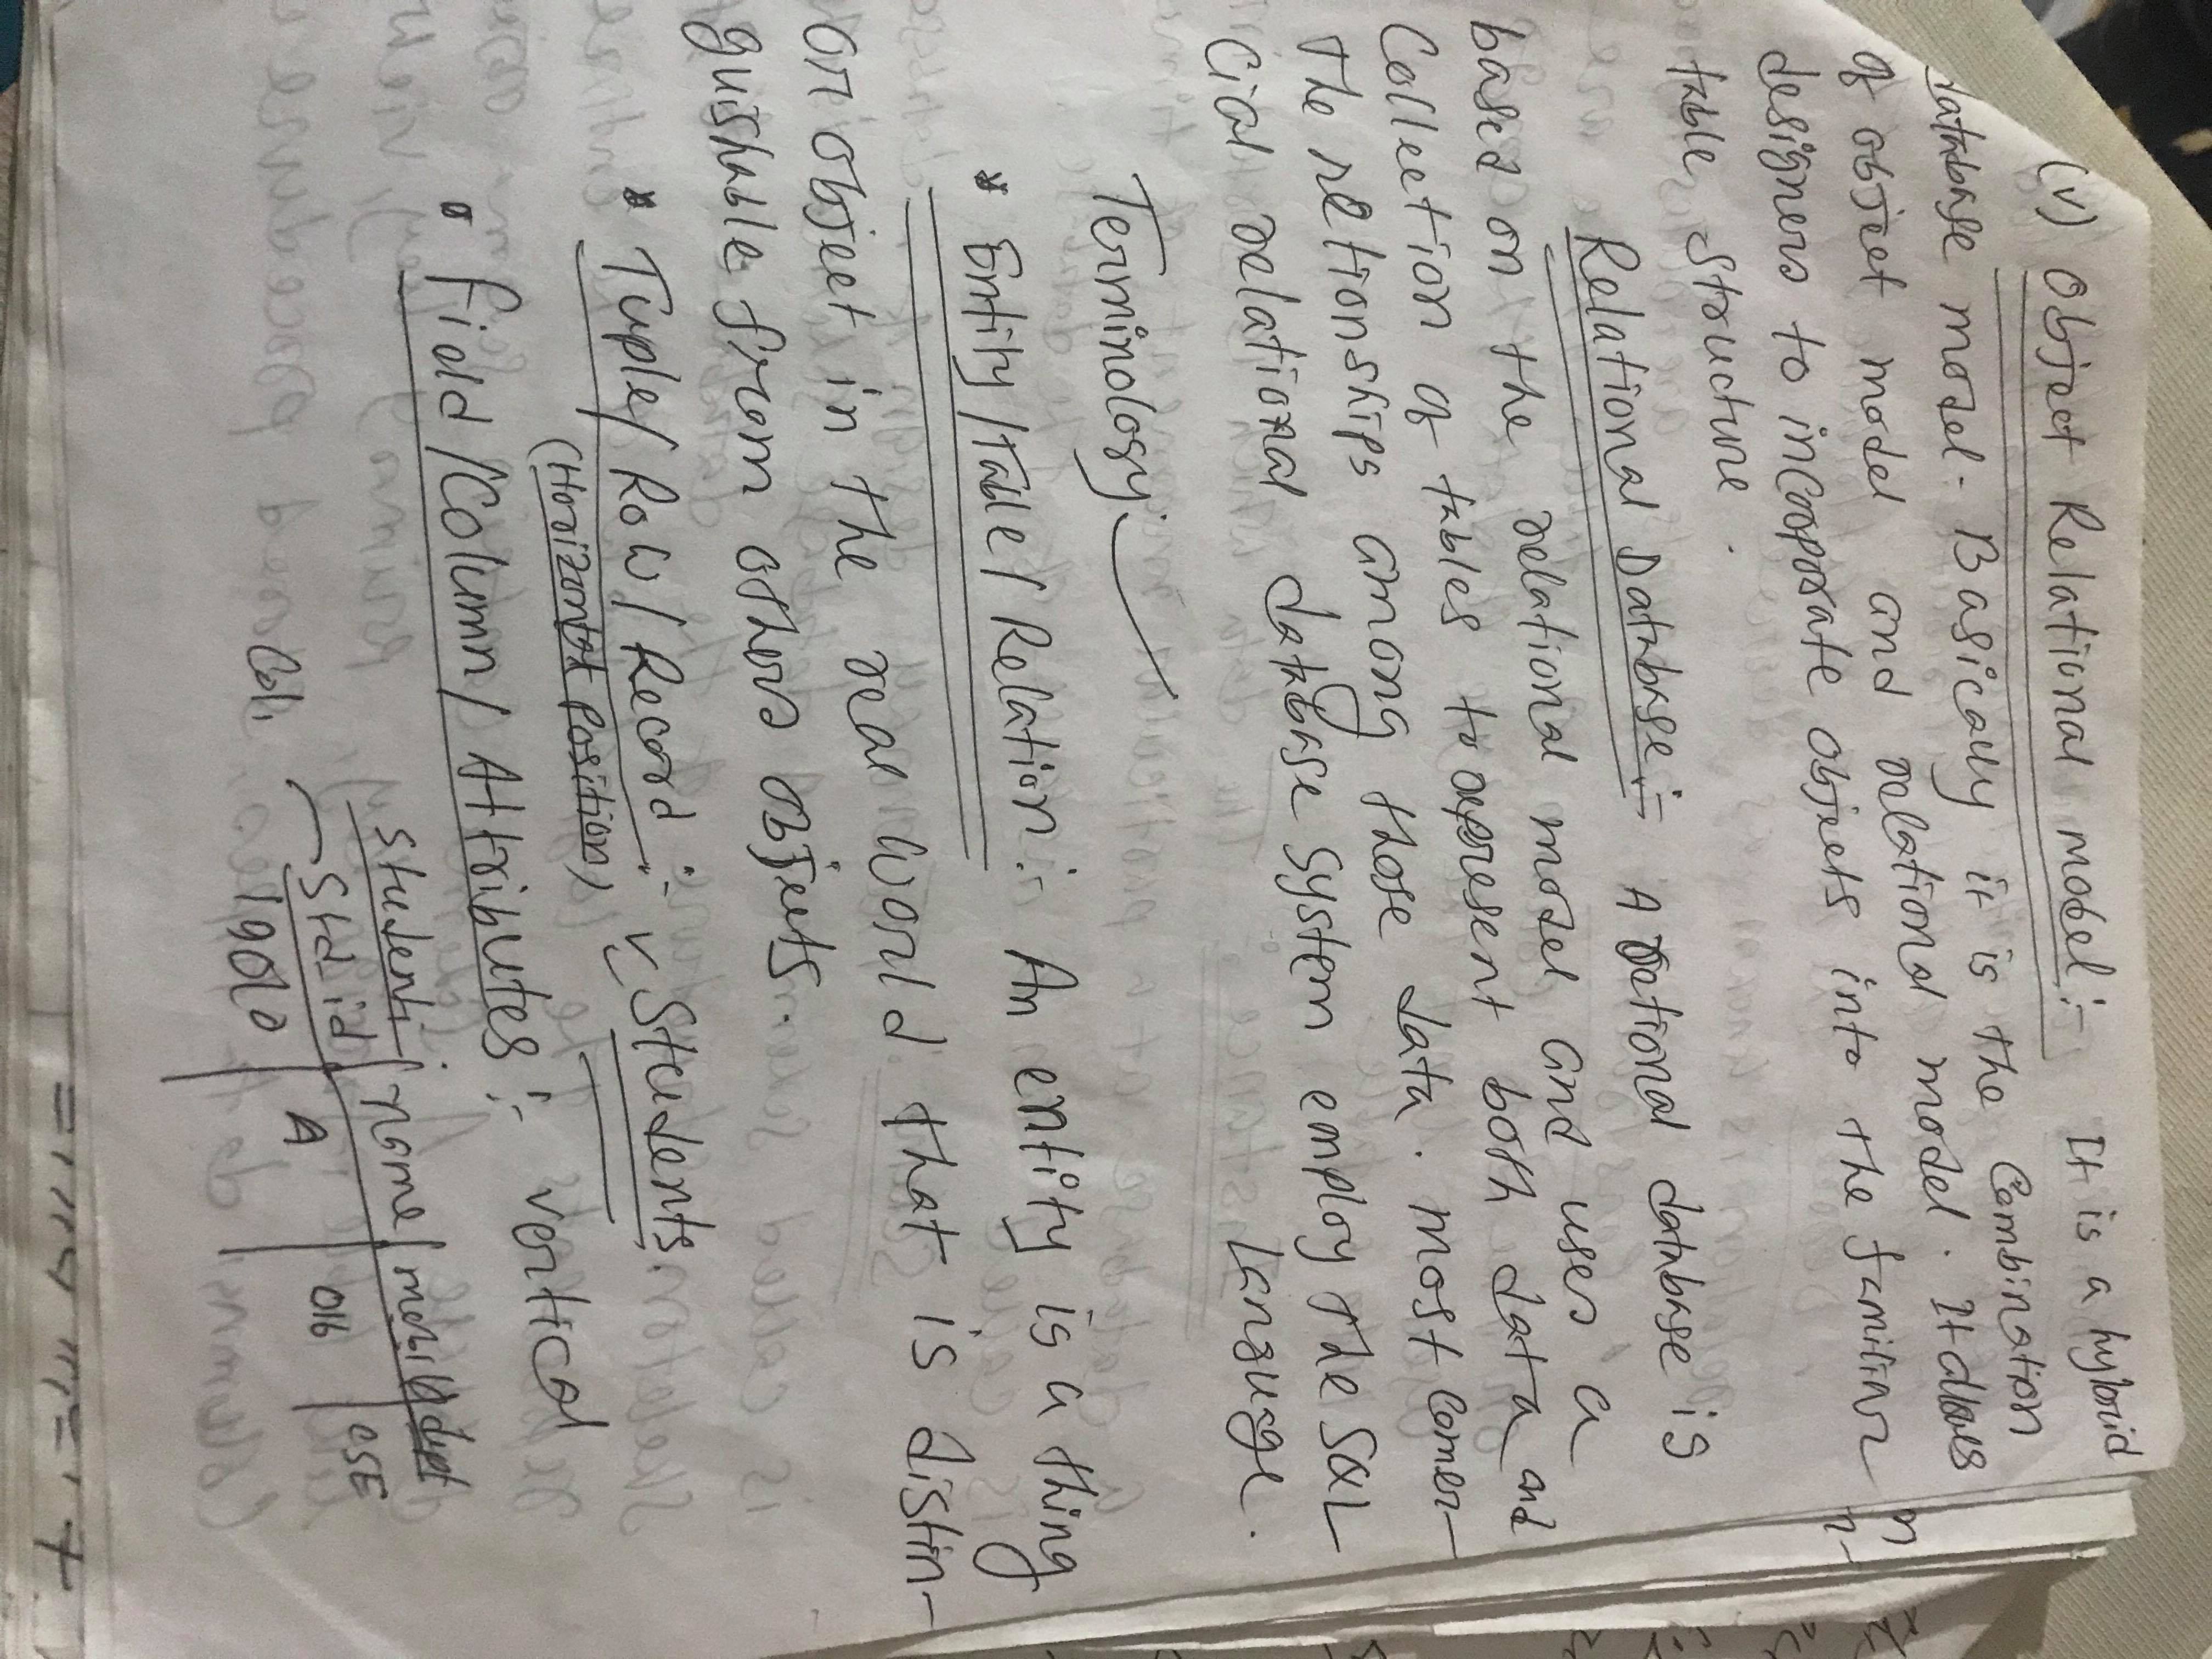 (v) Object Relational model:- It is a hybrid
database model. Basically it is the Combination
of object model and relational model. It allows
designers to incorporate objects into the familiar
table structure.
Relational Database:- A retional database is
based on the relational model and uses a
Collection of tables to represent both data and
The retionships among those data. Most comer-
cial relational database system employ the SQL
Language.
Terminology:
* Entity/Table/Relation:- An entity is a thing
or object in the real world that is distin-
guishable from others objects.
* Tuple/Row/Record:- Students.
(Horizontal Position)
Field/Column/Attributes:- vertical
Student: name mobile dept
Std_id A 016 CSE
Col. 19010